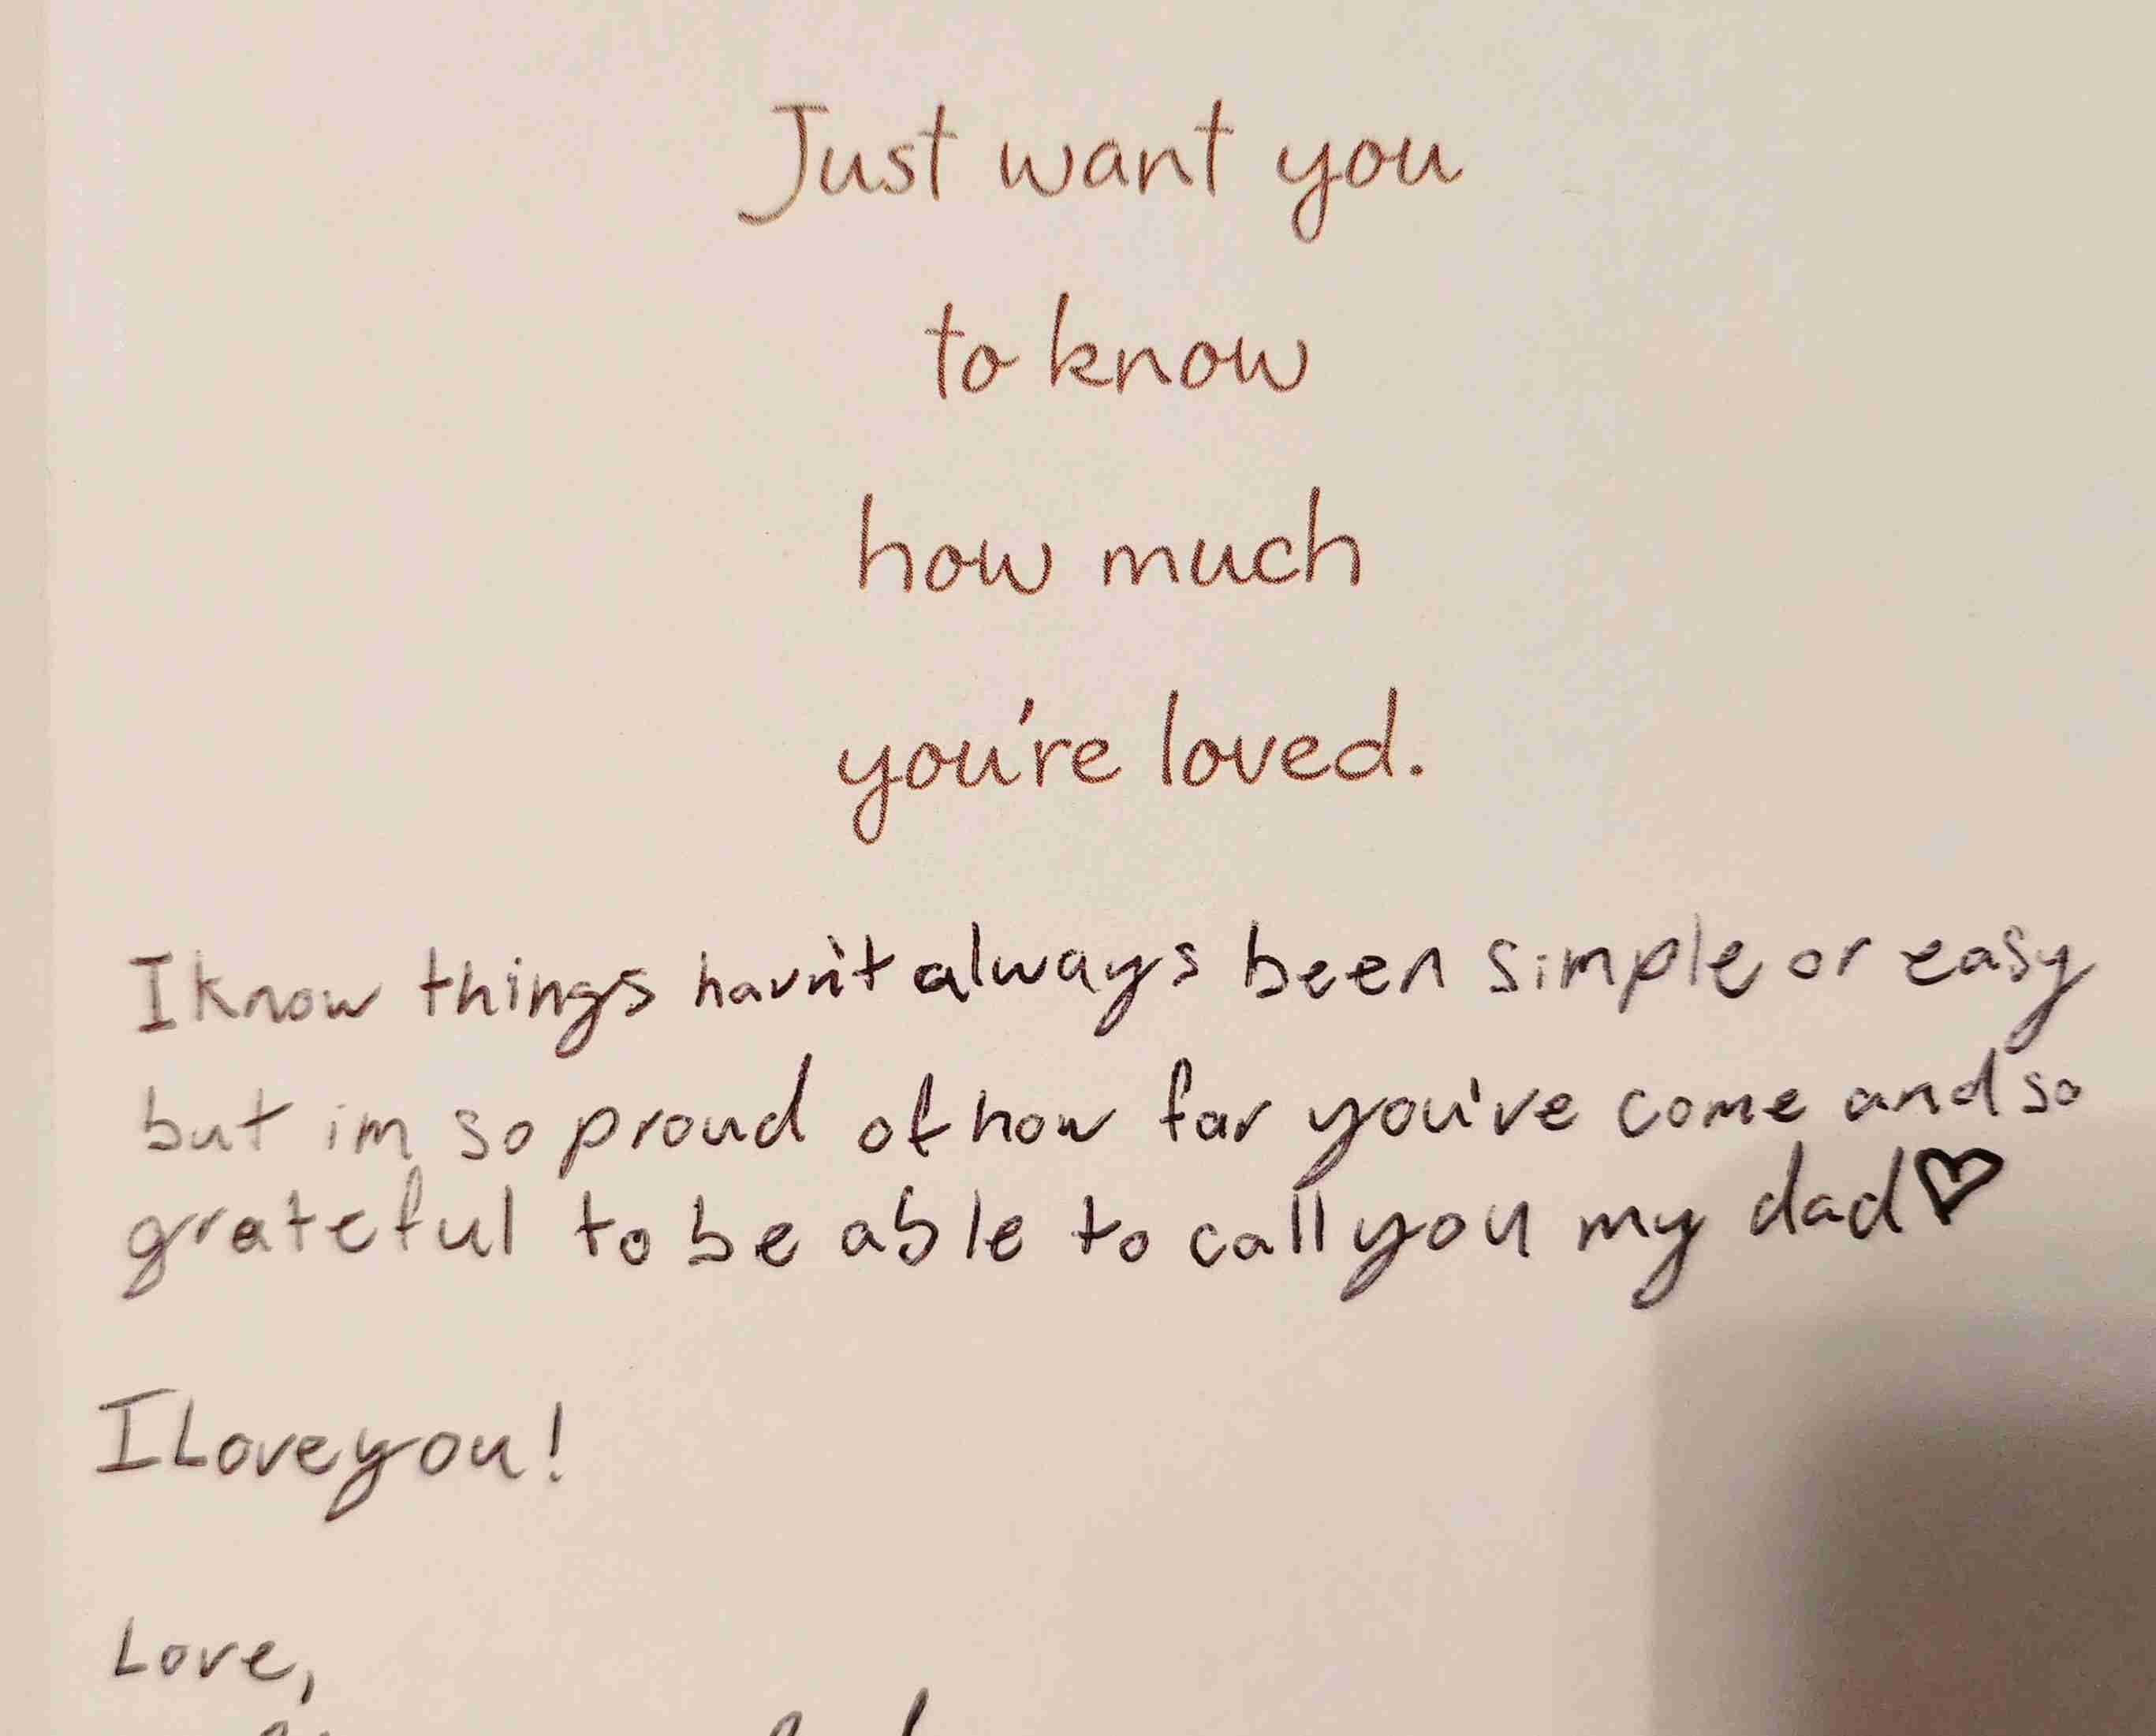 Just want you
to know
how much
you're loved.
I know things havn't always been simple or easy
but im so proud of how far you've come and so
grateful to be able to call you my dad♡
I Love you!
Love,